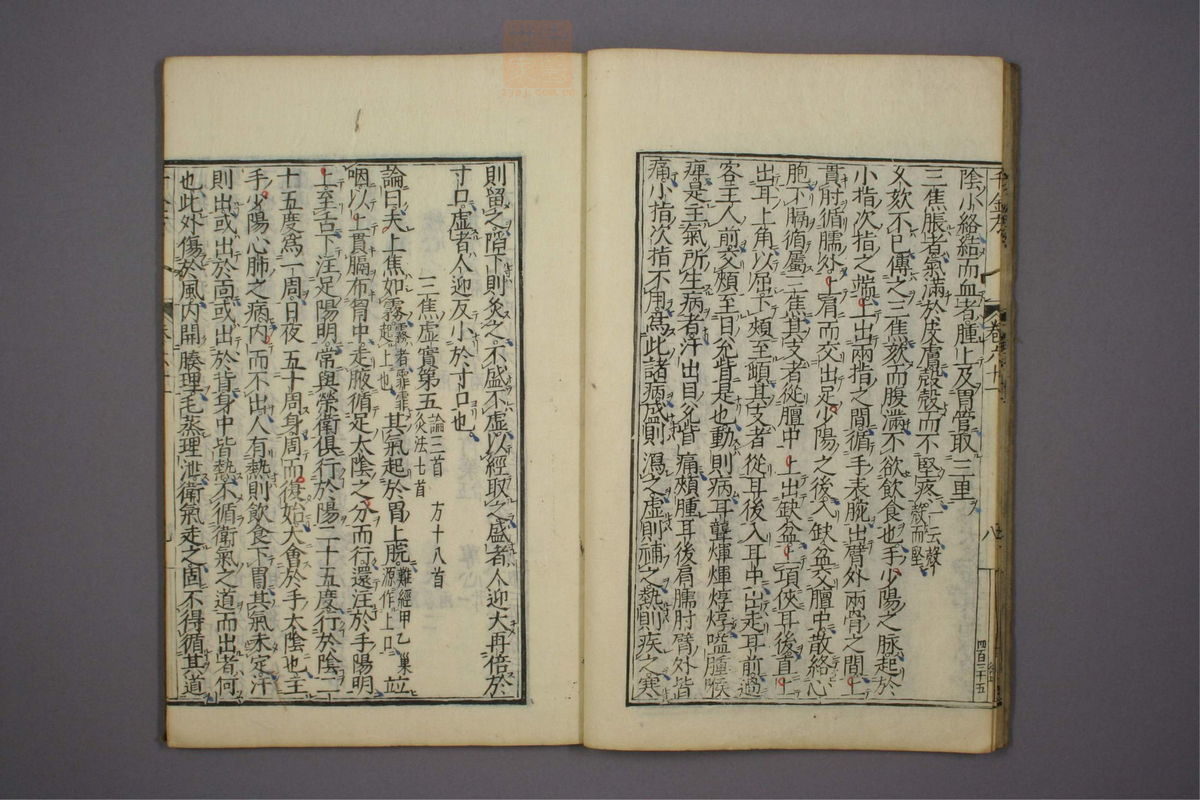 陰小絡結而血者腫上及胃管取三里
三焦脹者氣滿於皮膚殼殼而不堅疼一云殼殼而堅
久欬不已傳之三焦欬而腹滿不欲飲食也手少陽之脉起於
小指次指之端上出兩指之間循手表腕出臂外兩骨之間上
貫肘循臑外上肩而交出足少陽之後入缺盆交膻中散絡心
胞下膈循屬三焦其支者從膻中上出缺盆上項俠耳後直上
出耳上角以屈下頰至䪼其支者從耳後入耳中出走耳前過
客主人前交頰至目兌眥是也動則病耳聾煇煇焞焞嗌腫喉
痺是主氣所生病者汗出目兌眥痛頰腫耳後肩臑肘臂外皆
痛小指次指不用爲此諸病盛則瀉之虛則補之熱則疾之寒
則留之陷下則灸之不盛不虛以經取之盛者人迎大再倍於
寸口虛者人迎反小於寸口也
三焦虛實第五 論三首 方十八首 灸法七首
論曰夫上焦如霧霧者霏霏起上也其氣起於胃上脘難經甲乙巢源作上口並
咽以上貫膈布胷中走腋循足太陰之分而行還注於手陽明
上至舌下注足陽明常與榮衛俱行於陽二十五度行於陰二
十五度爲一周日夜五十周身周而復始大會於手太陰也主
手少陽心肺之病內而不出人有熱則飲食下胃其氣未定汗
則出或出於面或出於背身中皆熱不循衛氣之道而出者何
也此外傷於風內開腠理毛蒸理泄衛氣走之固不得循其道